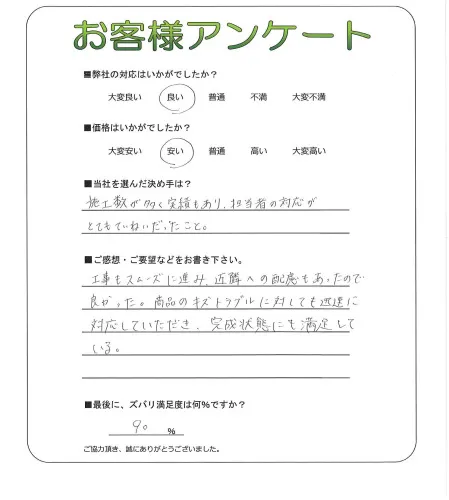 お客様アンケート
■弊社の対応はいかがでしたか？
大変良い 良い 普通 不満 大変不満
■価格はいかがでしたか？
大変安い 安い 普通 高い 大変高い
■当社を選んだ決め手は？
施工数が多く実績もあり、担当者の対応が
とてもていねいだったこと。
■ご感想・ご要望などをお書き下さい。
工事もスムーズに進み、近隣への配慮もあったので
良かった。商品のキズトラブルに対しても迅速に
対応していただき、完成状態にも満足して
いる。
■最後に、ズバリ満足度は何％ですか？
90 ％
ご協力頂き、誠にありがとうございました。